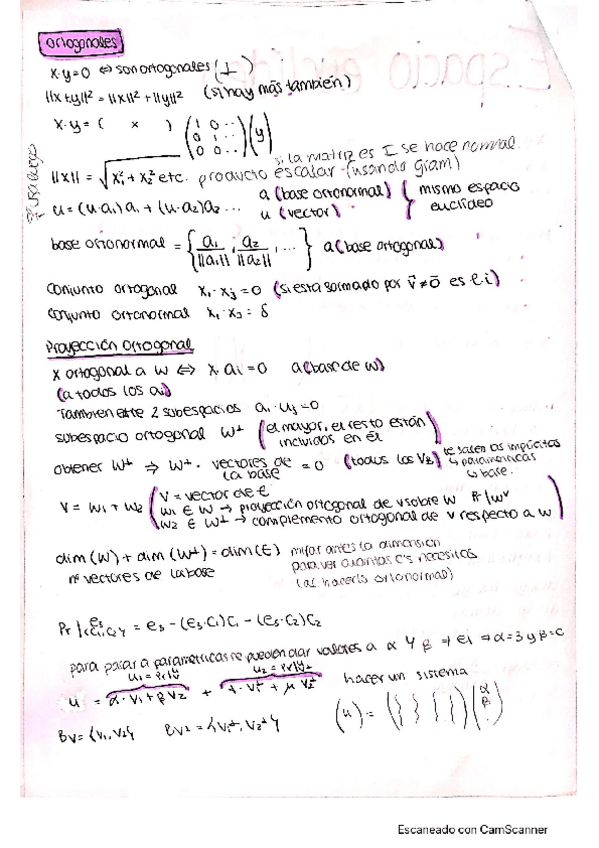 ortogonales
x·y=0 ⇔ son ortogonales (⊥)
||x+y||² = ||x||² + ||y||² (si hay más también)
x·y = ( x ) (1 0.. 0 1.. 0 0..) (y)
si la matriz es I se hace normal.
||x|| = √x₁² + x₂² etc. producto escalar (usando Gram)
u = (u·a₁)a₁ + (u·a₂)a₂ ... a (base ortonormal) u (vector) } mismo espacio euclídeo
base ortonormal = { a₁/||a₁||, a₂/||a₂||, ... } a (base ortogonal)
conjunto ortogonal xᵢ·xⱼ = 0 (si esta formado por v̄≠0̄ es l.i)
conjunto ortonormal xᵢ·xⱼ = δ
Proyección ortogonal
x ortogonal a W ⇔ x·aᵢ = 0 a (base de W)
(a todos los aᵢ)
también entre 2 subespacios aᵢ·uⱼ = 0
subespacio ortogonal W⊥ (el mayor, el resto están incluidos en él)
obtener W⊥ ⇒ W⊥· vectores de la base = 0 (todos los V₂) te salen las implícitas ↳ paramétricas ↳ base.
V = W₁ + W₂ ( V = vector de E
W₁ ∈ W → proyección ortogonal de v sobre W Pr|wᵛ
W₂ ∈ W⊥ → complemento ortogonal de v respecto a W )
dim(W) + dim(W⊥) = dim(E) mirar antes la dimensión
nº vectores de la base para ver cuantos e's necesitas
(al hacerlo ortonormal)
= e₃ - (e₃·c₁)c₁ - (e₃·c₂)c₂
para pasar a paramétricas se pueden dar valores a α y β
u₁ = u₂ = hacer un sistema
u = α·v₁ + βv₂ + λ·v₁⊥ + μ v₂⊥
(u) = ( ) (α β)
Bv = {v₁, v₂} Bv⊥ = {v₁⊥, v₂⊥}
Escaneado con CamScanner